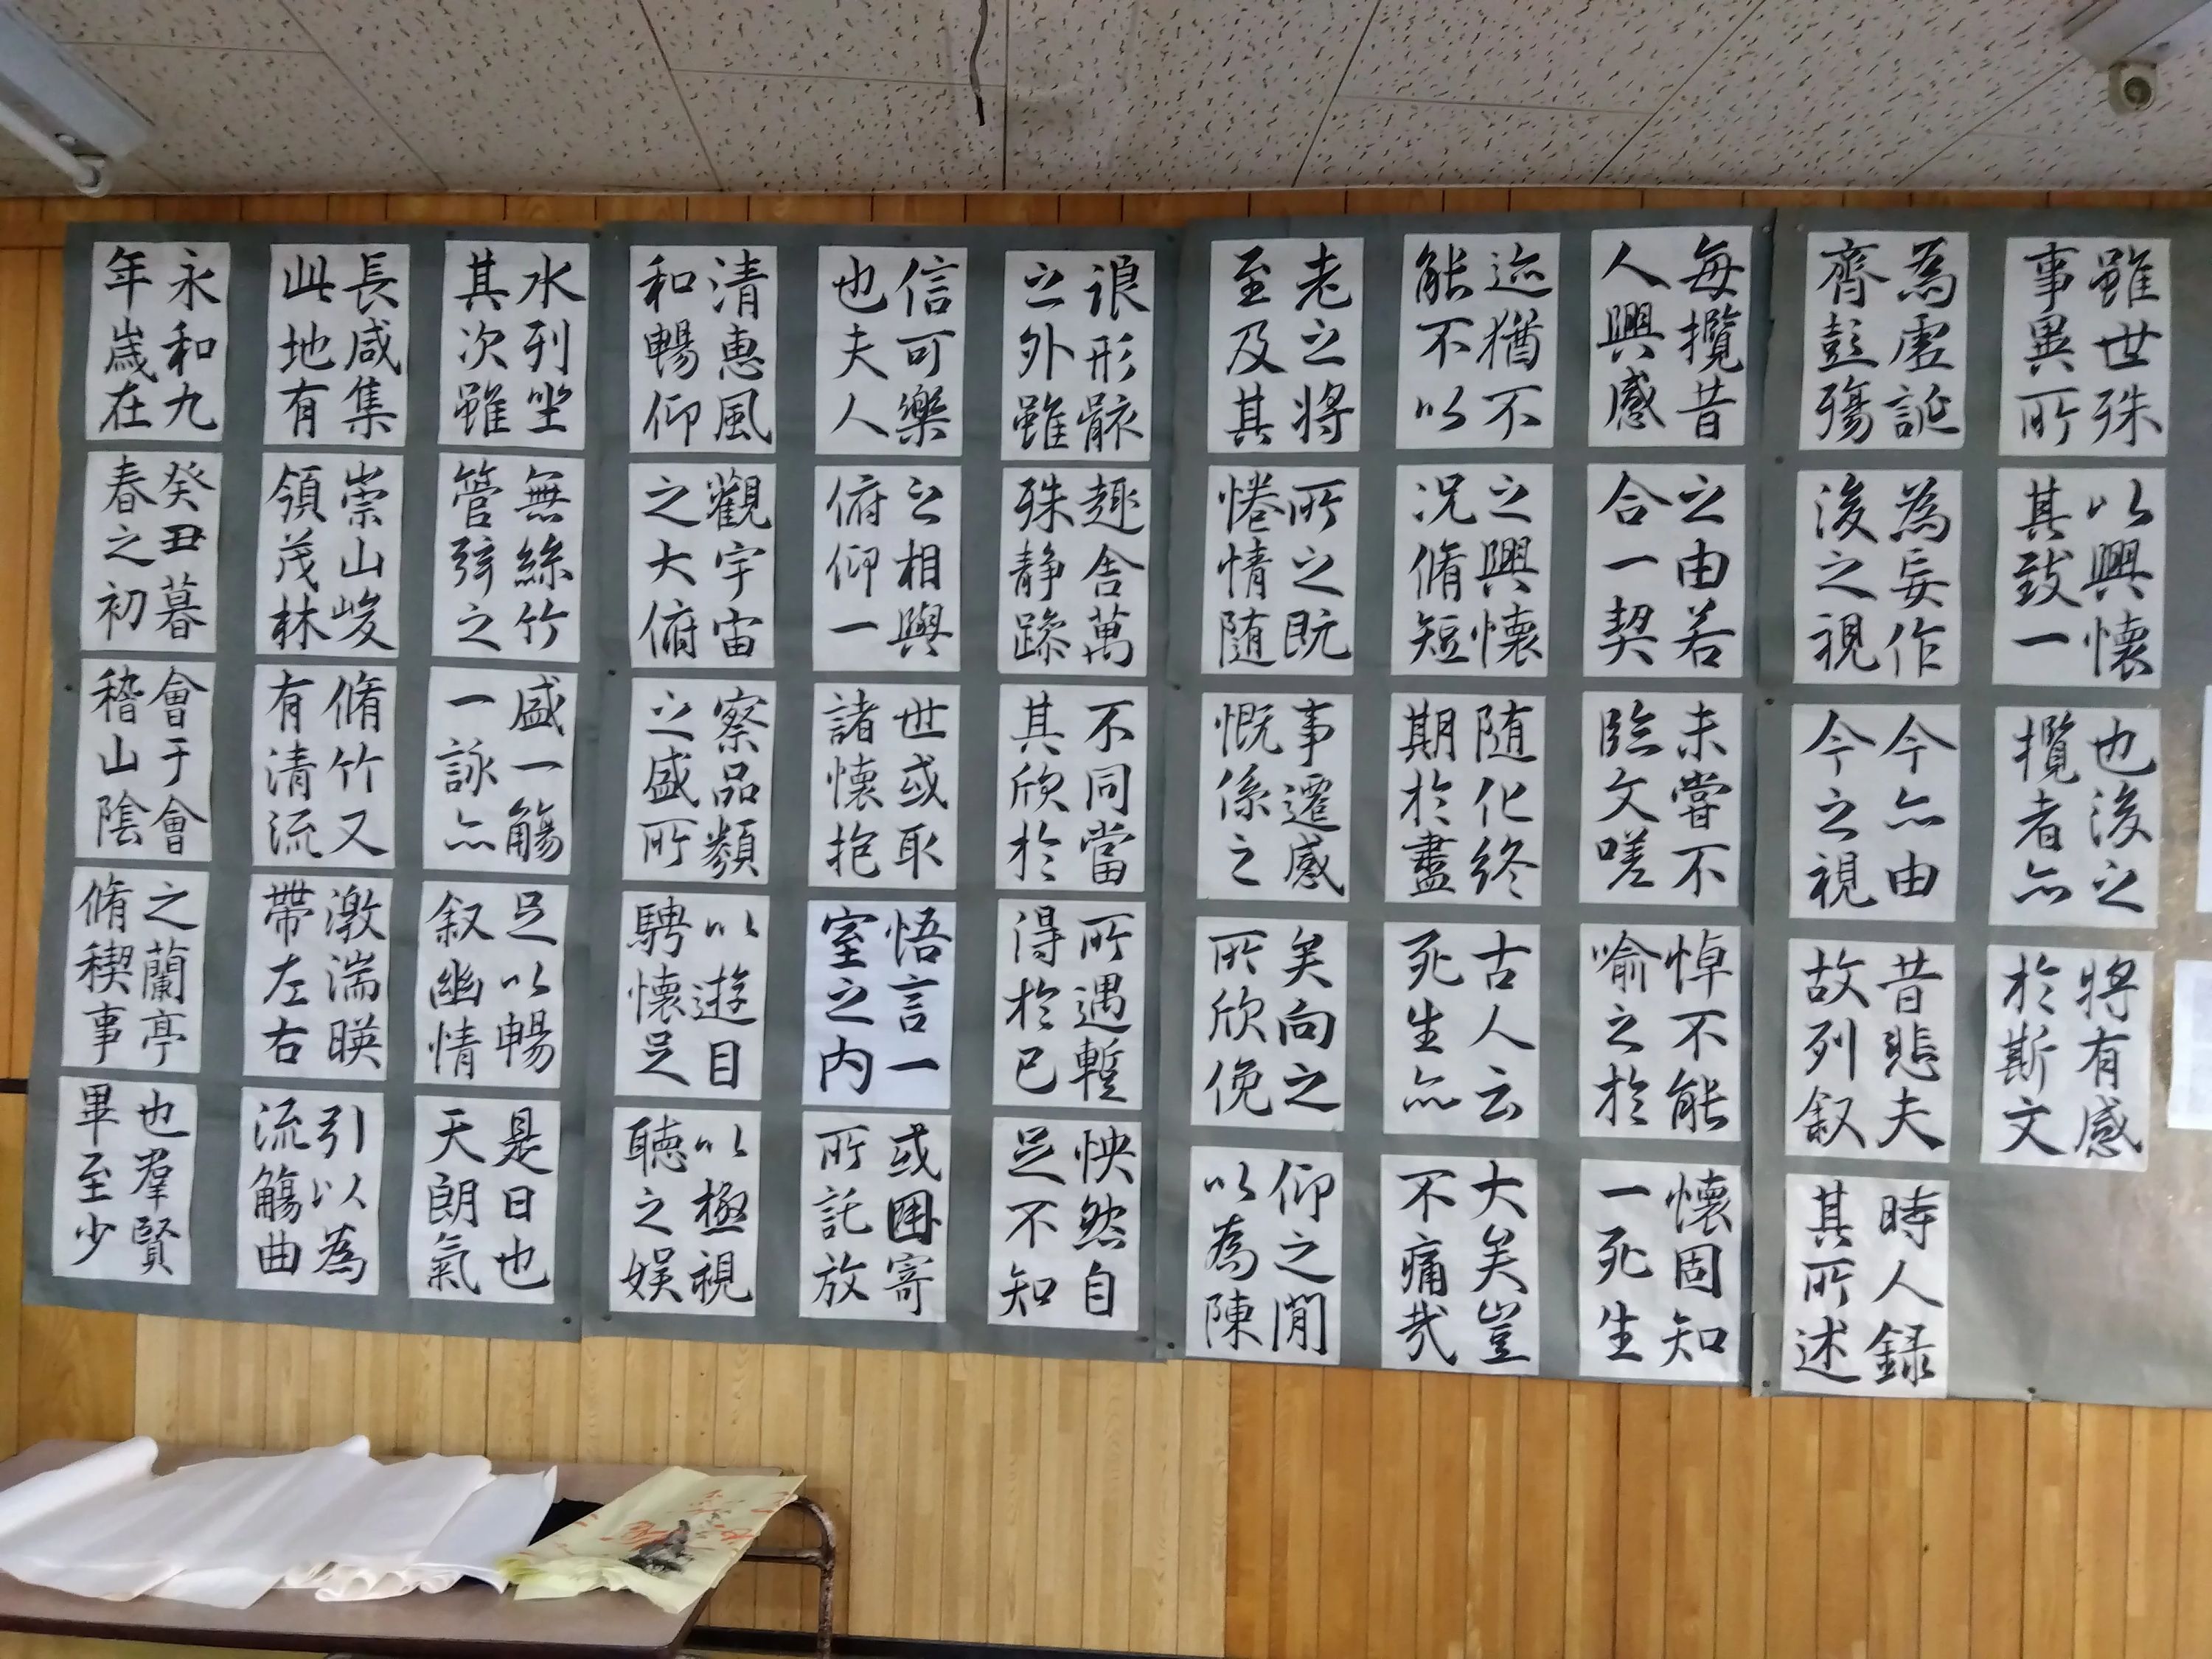 永和九
年歳在
癸丑暮
春之初
會于會
稽山陰
之蘭亭
脩稧事
也羣賢
畢至少
長咸集
此地有
崇山峻
領茂林
脩竹又
有清流
激湍暎
帶左右
引以為
流觴曲
水列坐
其次雖
無絲竹
管弦之
盛一觴
一詠亦
足以暢
叙幽情
是日也
天朗氣
清惠風
和暢仰
觀宇宙
之大俯
察品類
之盛所
以遊目
騁懷足
以極視
聴之娯
信可樂
也夫人
之相與
俯仰一
世或取
諸懷抱
悟言一
室之内
或因寄
所託放
浪形骸
之外雖
趣舎萬
殊静躁
不同當
其欣於
所遇蹔
得於己
怏然自
足不知
老之將
至及其
所之既
惓情随
事遷感
慨係之
矣向之
所欣俛
仰之閒
以為陳
迹猶不
能不以
之興懷
况脩短
随化終
期於盡
古人云
死生亦
大矣豈
不痛哉
每攬昔
人興感
之由若
合一契
未嘗不
臨文嗟
悼不能
喻之於
懷固知
一死生
為虚誕
齊彭殤
為妄作
後之視
今亦由
今之視
昔悲夫
故列叙
時人録
其所述
雖世殊
事異所
以興懷
其致一
也後之
攬者亦
將有感
於斯文